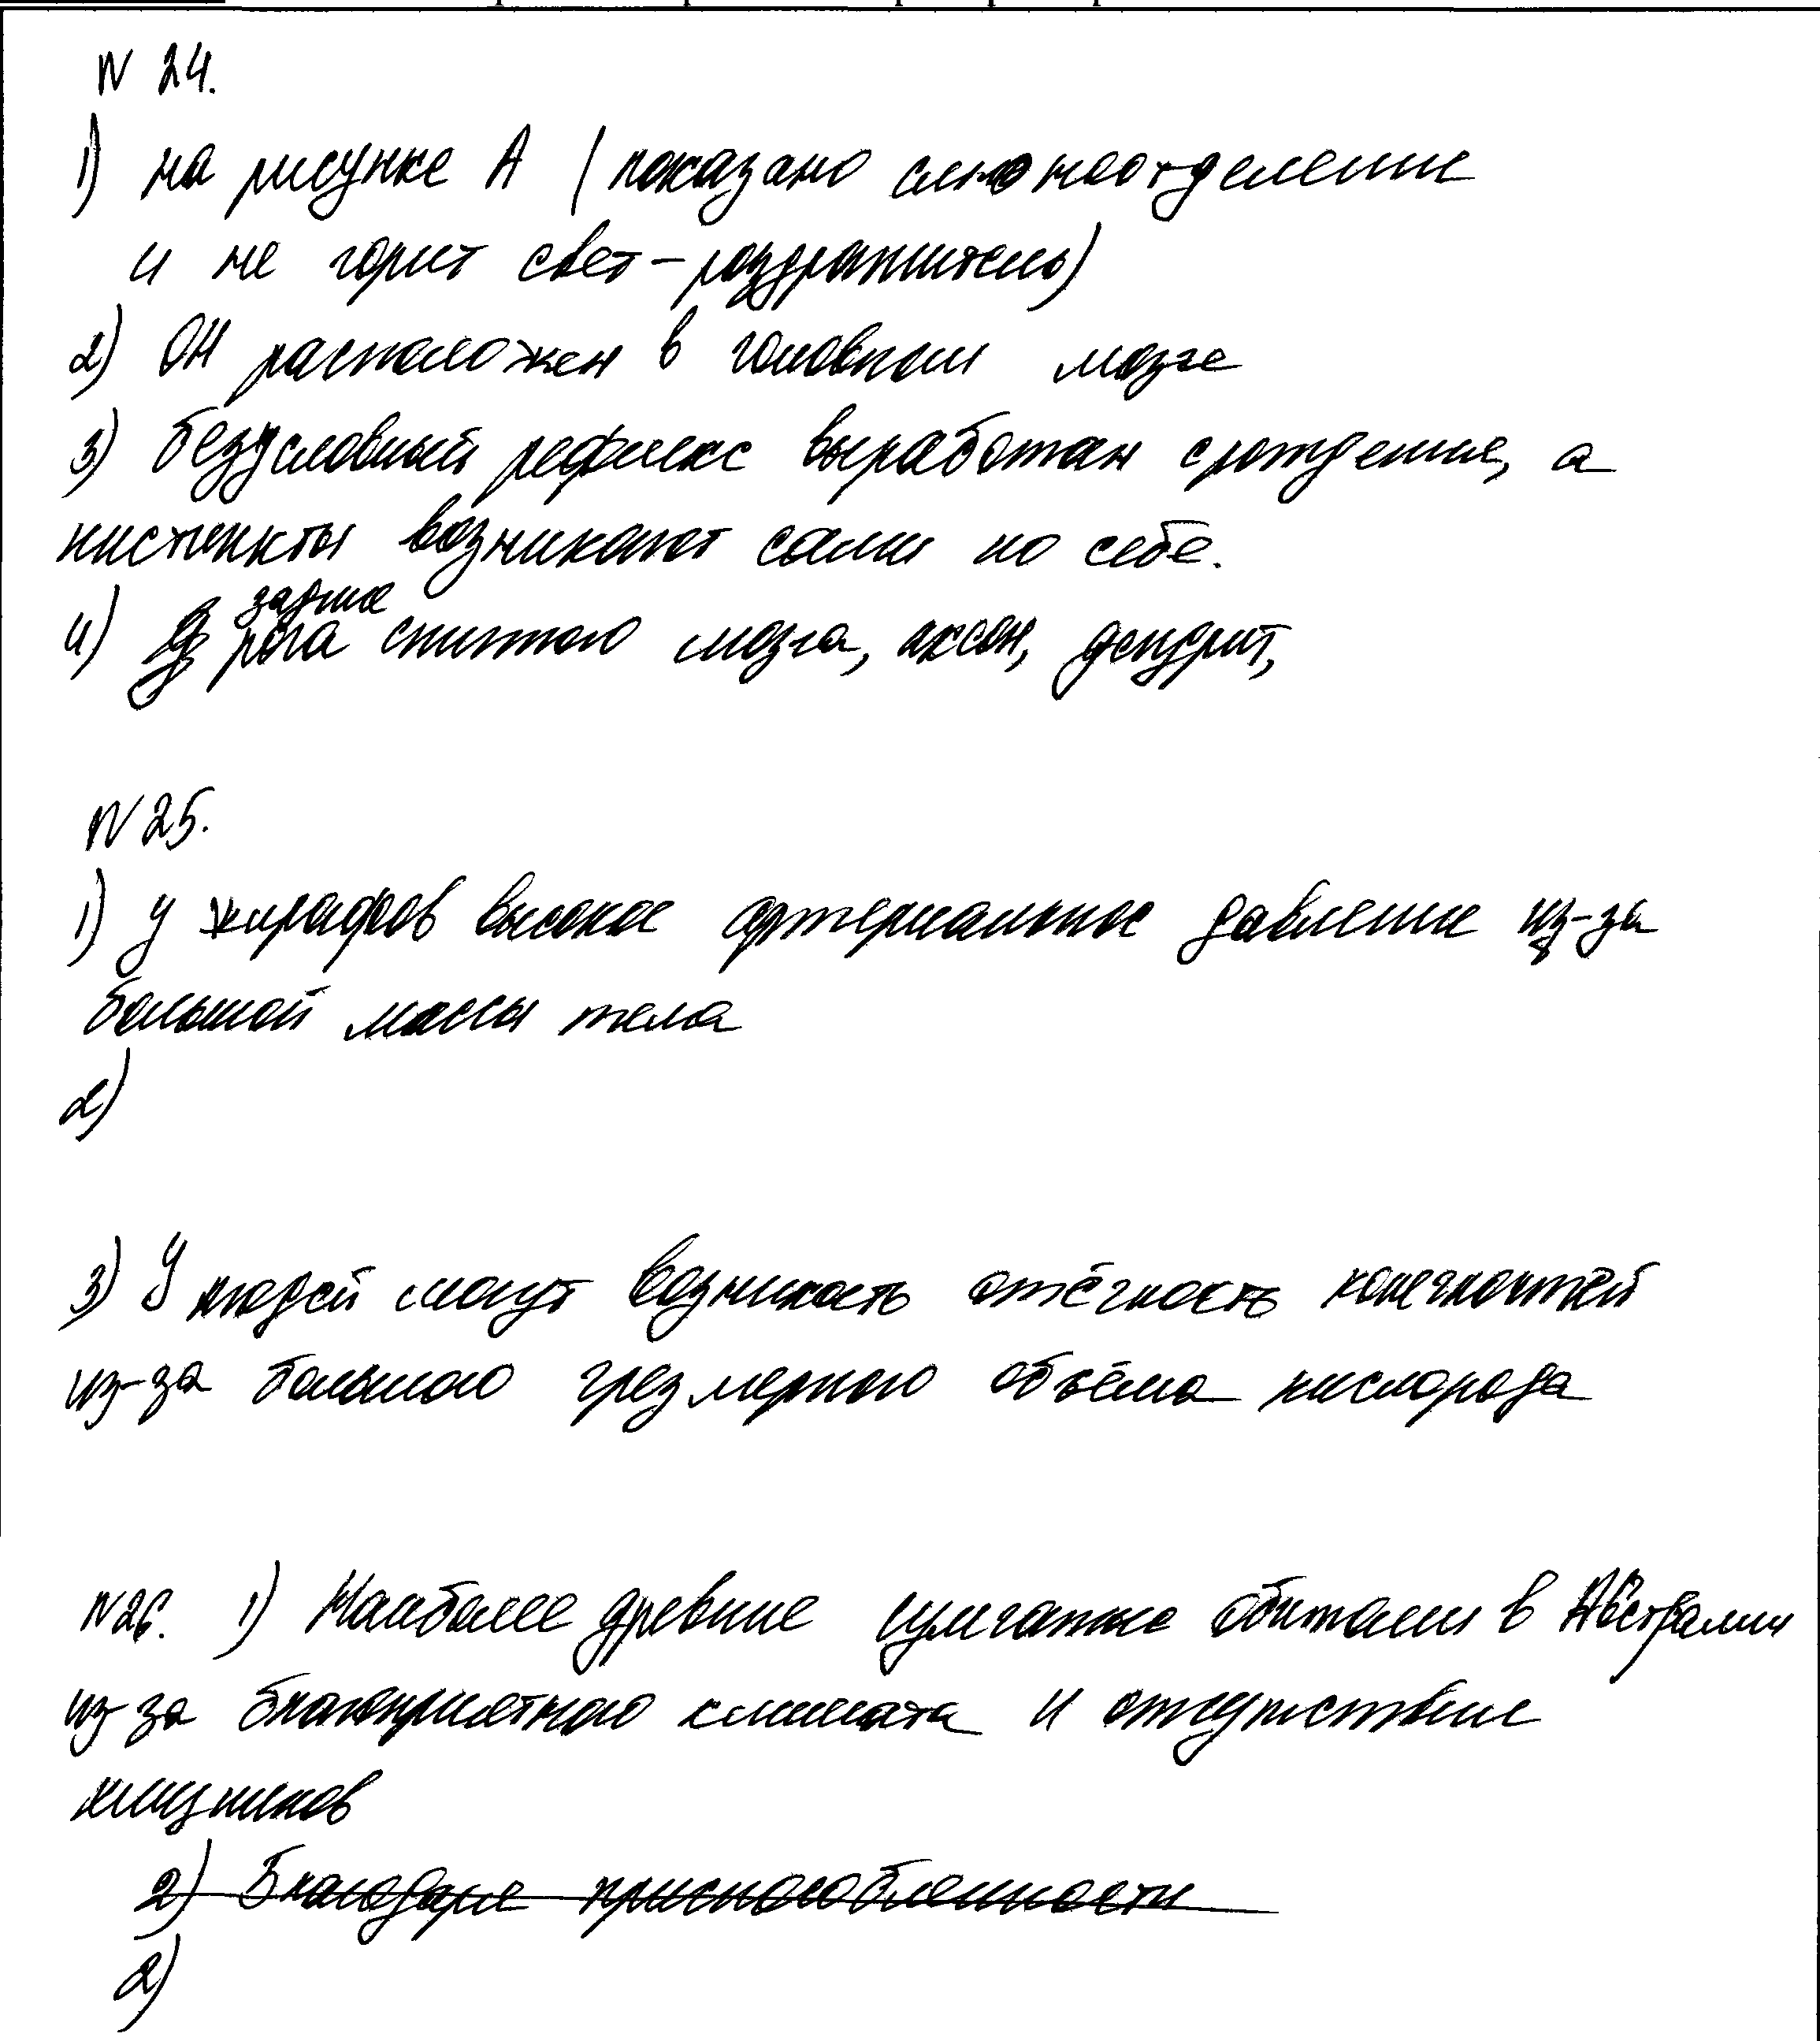 N 24.
1) на рисунке А (показано слюноотделение
и не горит свет-раздражитель)
2) ОН расположен в головном мозге
3) безусловный рефлекс выработан с рождение, а
инстинкты возникают сами по себе.
задние
4) рога спинного мозга, аксон, дендрит,
N 25.
1) У жирафов высокое артериальное давление из-за
большой массы тела
2)
3) У людей могут возникать отёчность конечностей
из-за большого чрезмерного объёма кислорода
N26. 1) Наиболее древние сумчатые обитали в Австралии
из за благоприятного климата и отсутствие
хищников
2) Благодаря приспособленности
2)